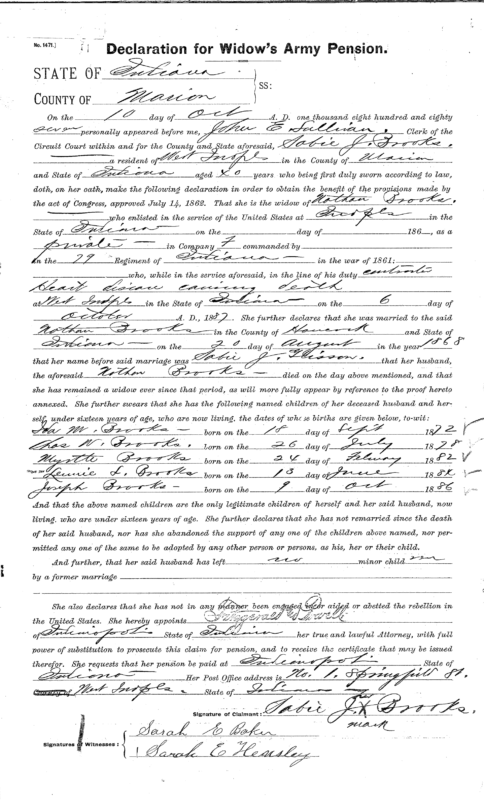 No. 1471.]
Declaration for Widow's Army Pension.
STATE OF Indiana
SS:
COUNTY OF Marion
On the 10 day of Oct A. D. one thousand eight hundred and eighty
seven personally appeared before me, John E Sullivan, Clerk of the
Circuit Court within and for the County and State aforesaid, Sabie J. Brooks.
a resident of West Indpls in the County of Marion
and State of Indiana aged 40 years who being first duly sworn according to law,
doth, on her oath, make the following declaration in order to obtain the benefit of the provisions made by
the act of Congress, approved July 14, 1862. That she is the widow of Nathan Brooks.
who enlisted in the service of the United States at Indpls in the
State of Indiana on the day of 186 , as a
private in Company F commanded by
in the 79 Regiment of Indiana in the war of 1861:
who, while in the service aforesaid, in the line of his duty contracted
Heart disease causing death
at West Indpls in the State of Indiana on the 6 day of
October A. D., 1887. She further declares that she was married to the said
Nathan Brooks in the County of Hancock and State of
Indiana on the 20 day of August in the year 1868
that her name before said marriage was Sabie J. that her husband,
the aforesaid Nathan Brooks died on the day above mentioned, and that
she has remained a widow ever since that period, as will more fully appear by reference to the proof hereto
annexed. She further swears that she has the following named children of her deceased husband and her-
self, under sixteen years of age, who are now living, the dates of whose births are given below, to-wit:
Ida M. Brooks born on the 18 day of Sept 1872
Chas W. Brooks. born on the 26 day of July 1878
Myrtle Brooks born on the 24 day of Febuary 1882
Lennie L. Brooks born on the 13 day of June 1884
Joseph Brooks born on the 9 day of Oct 1886
And that the above named children are the only legitimate children of herself and her said husband, now
living, who are under sixteen years of age. She further declares that she has not remarried since the death
of her said husband, nor has she abandoned the support of any one of the children above named, nor per-
mitted any one of the same to be adopted by any other person or persons, as his, her or their child.
And further, that her said husband has left no minor child
by a former marriage
She also declares that she has not in any manner been engaged in or aided or abetted the rebellion in
the United States. She hereby appoints
of Indianapolis State of Indiana her true and lawful Attorney, with full
power of substitution to prosecute this claim for pension, and to receive the certificate that may be issued
therefor. She requests that her pension be paid at Indianapolis State of
Indiana Her Post Office address is No. 1. Springfield St.
West Indpls. State of Indiana
her
Signature of Claimant: Sabie J. X Brooks.
mark
Signatures of Witnesses:
Sarah E Baker
Sarah E Hensley